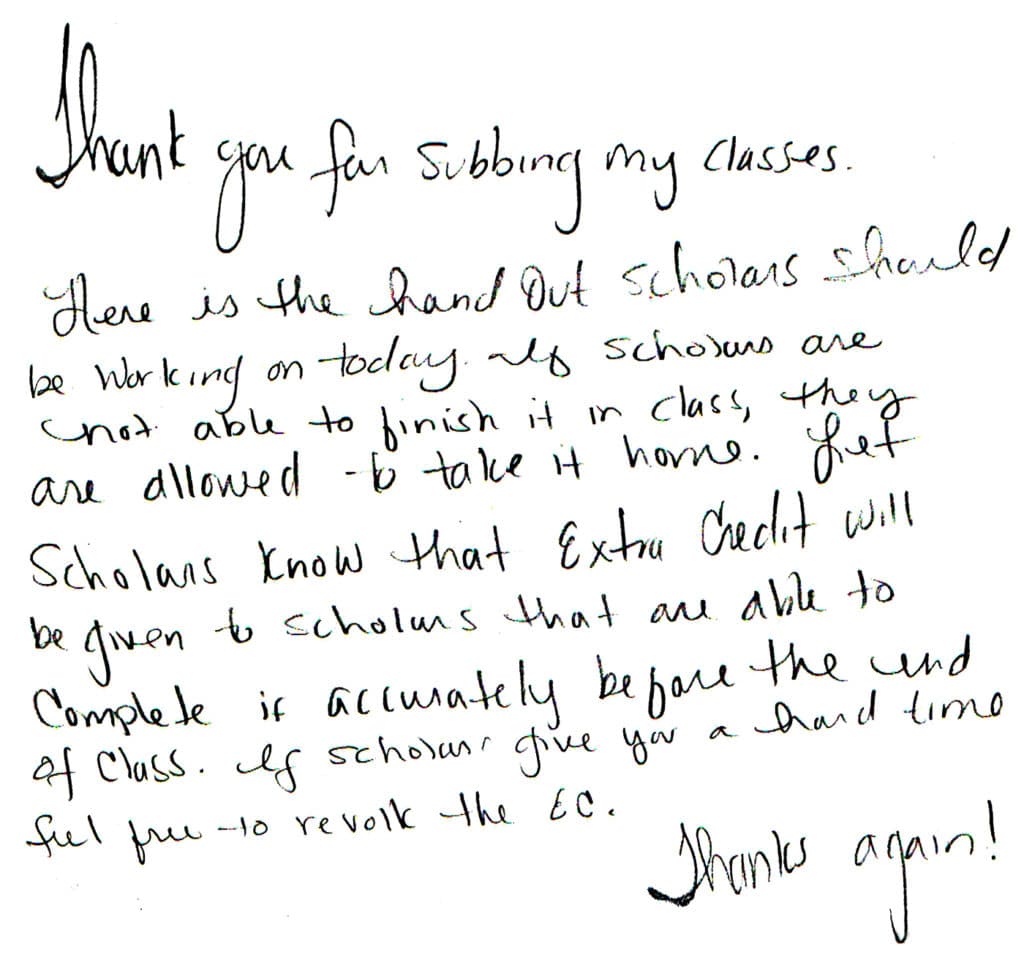 Thank you for subbing my classes.
Here is the hand out scholars should
be working on today. If scholars are
not able to finish it in class, they
are allowed to take it home. Let
Scholars know that Extra Credit will
be given to scholars that are able to
Complete it accurately before the end
of Class. If scholars give you a hard time
feel free to revolk the EC.
Thanks again!